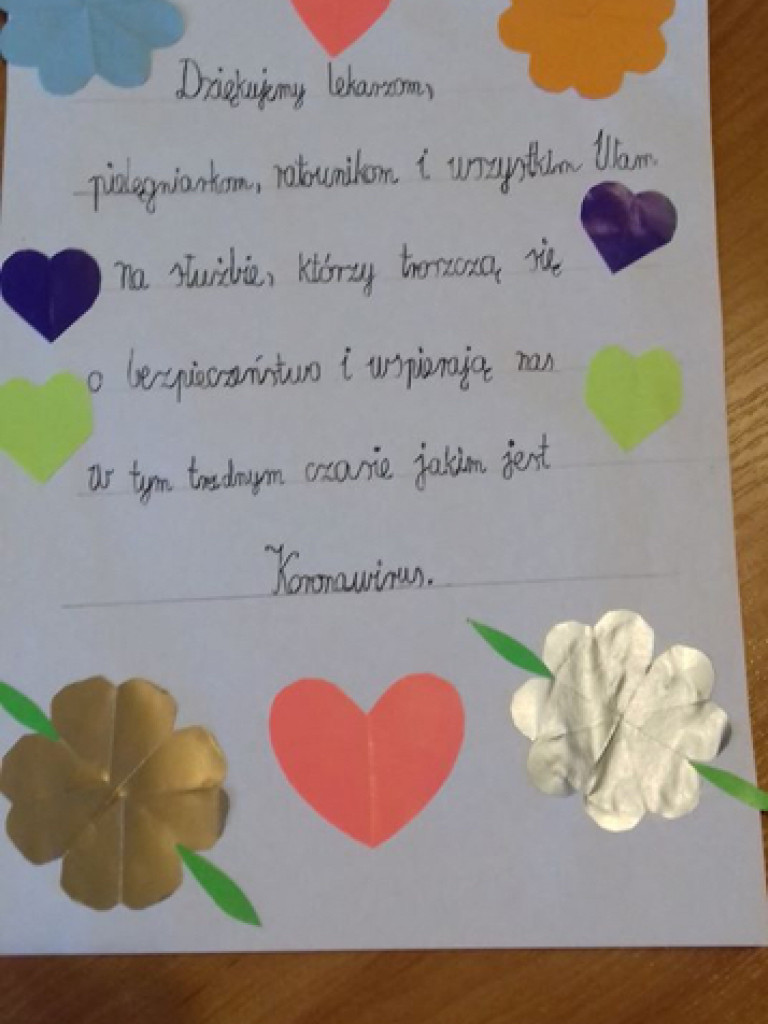 Dziękujemy lekarzom,
pielęgniarkom, ratownikom i wszystkim Wam
na służbie, którzy troszczą się
o bezpieczeństwo i wspierają nas
w tym trudnym czasie jakim jest
Koronawirus.